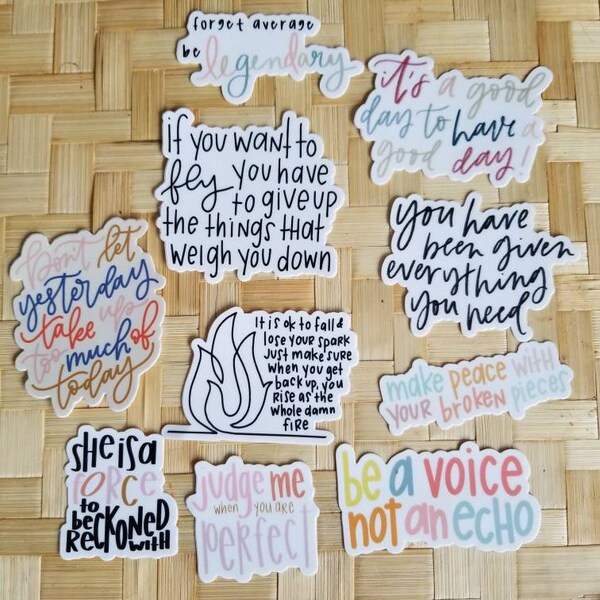 forget average
be legendary
it's a good
day to have a
good day!
if you want to
fly you have
to give up
the things that
weigh you down
you have
been given
everything
you need
Don't let
yesterday
take up
too much of
today
It is ok to fall &
lose your spark
Just make sure
when you get
back up, you
rise as the
whole damn
fire
make peace with
your broken pieces
she is a
FORCE
to
be
RECKONED
with
judge me
when you are
perfect
be a voice
not an echo